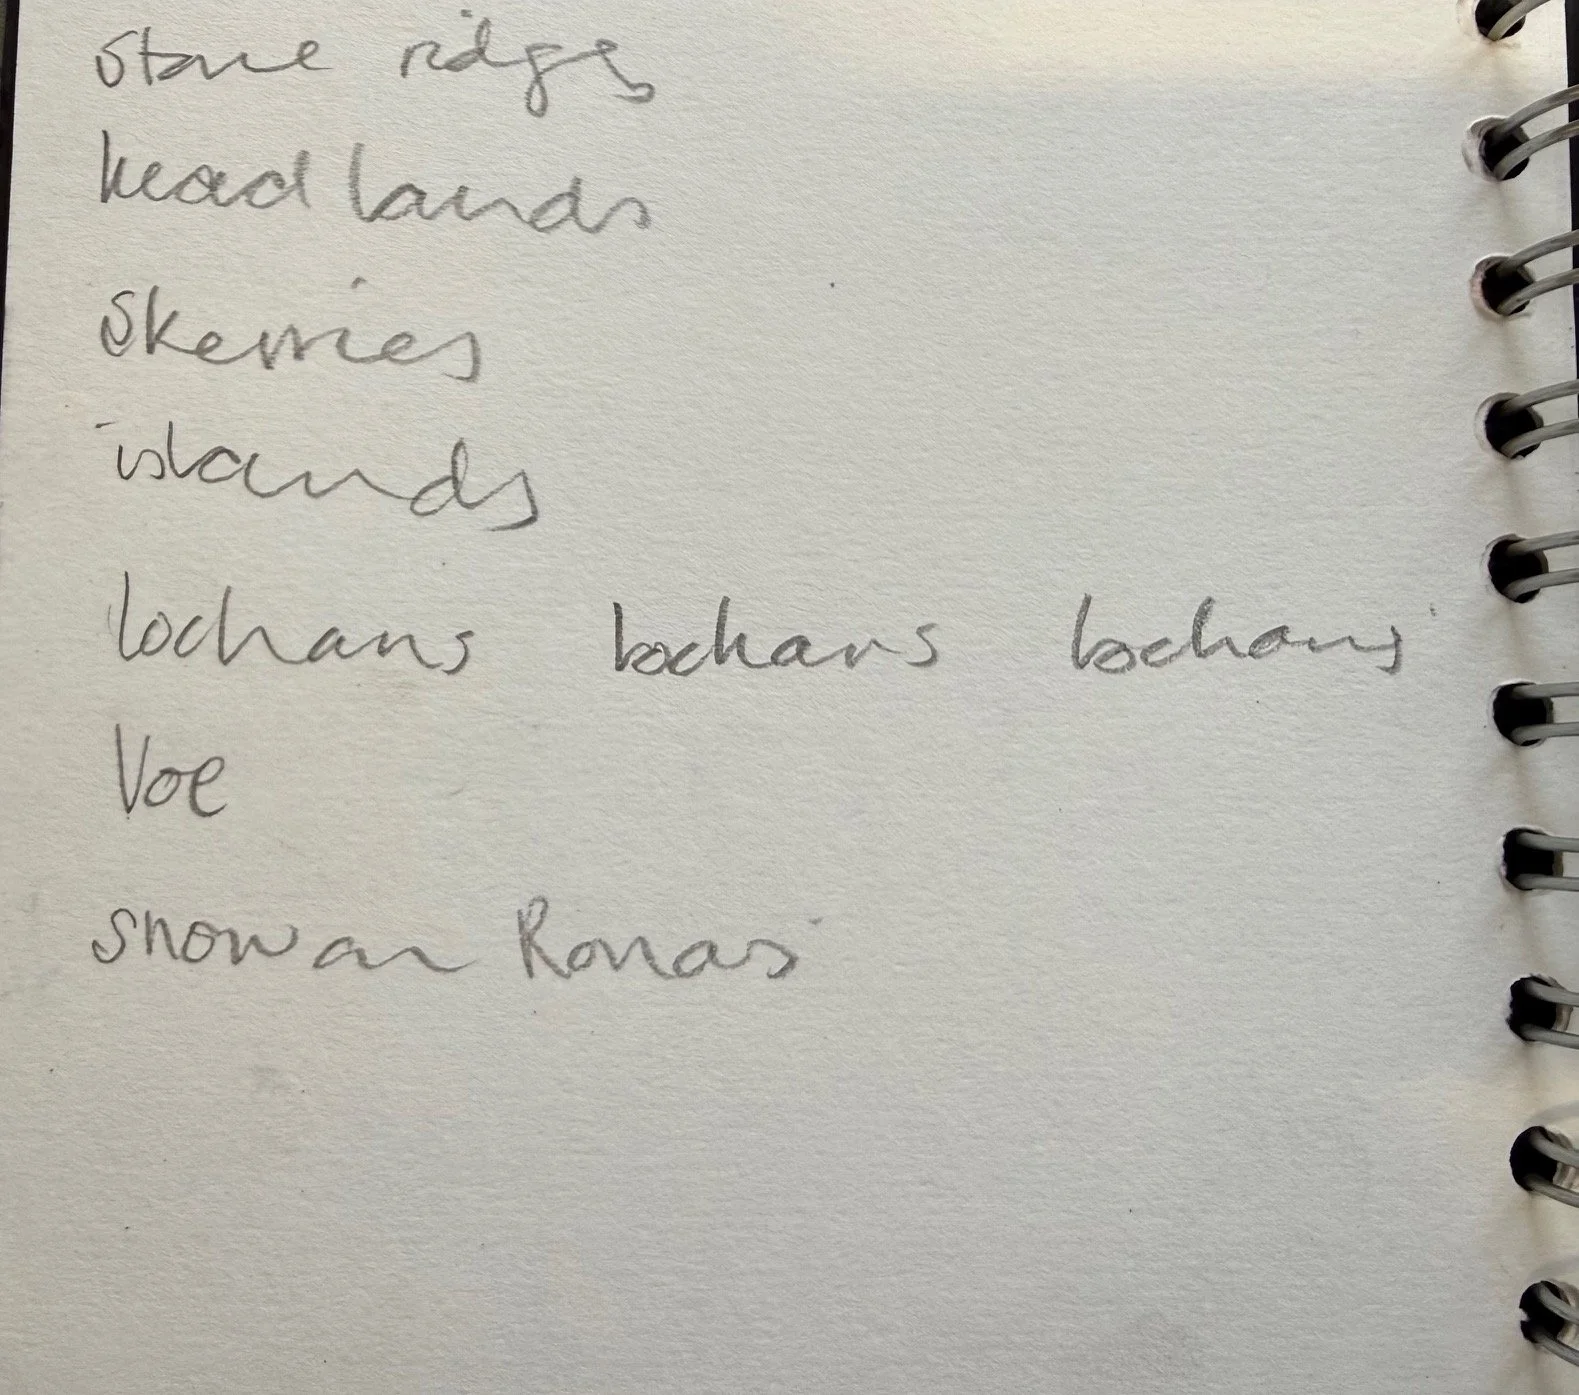 stone ridges
head lands
skerries
islands
lochans lochans lochans
Voe
snow on Ronas